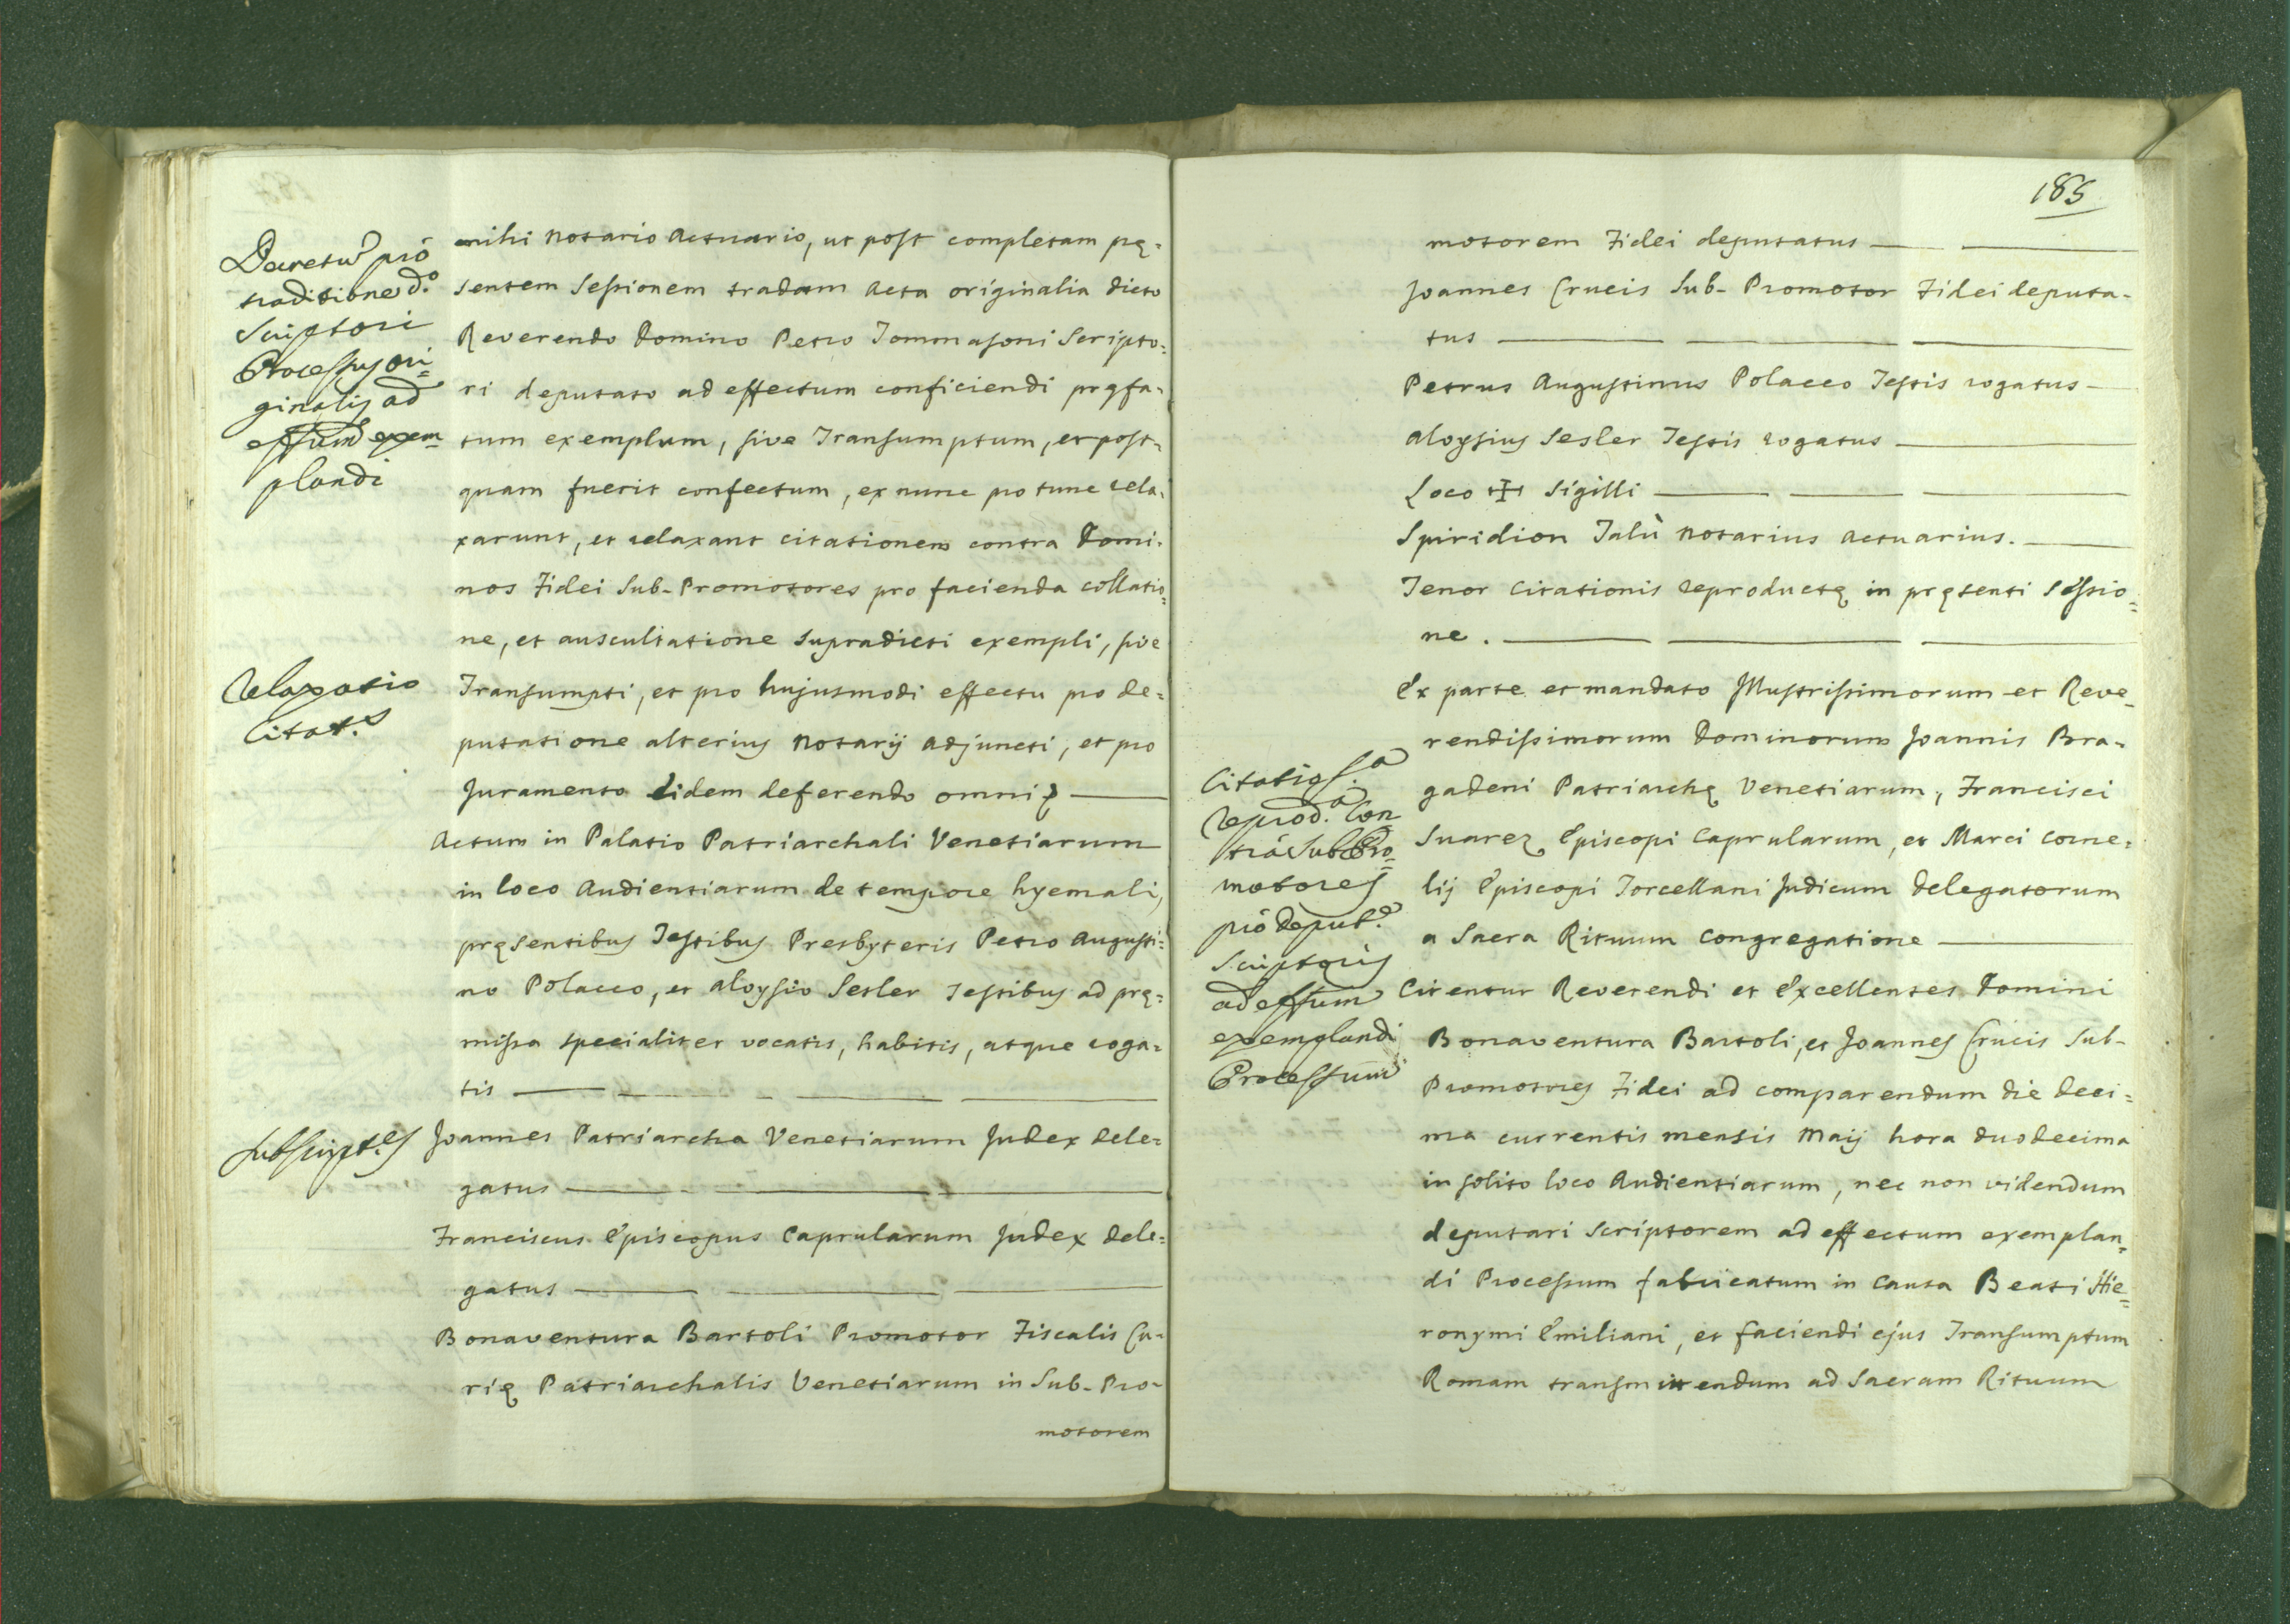 Decretũ pro
traditione d.º
Scriptori
Processus ori=
ginalis ad
effum exem=
plandi
mihi Notario Actuario, ut post completam prę=
sentem Sessionem tradam Acta originalia dicto
Reverendo Domino Petro Tommasoni Scripto=
ri deputato ad effectum conficiendi pręfa=
tum exemplum, sive Transumptum, et post=
quam fuerit confectum, ex nunc pro tunc rela=
xarunt, et relaxant citationem contra Domi=
nos Fidei Sub-Promotores pro facienda collatio=
ne, et auscultatione supradicti exempli, sive
Relaxatio
Citat.s
Transumpti, et pro hujusmodi effectu pro de=
putatione alterius Notarij adjuncti, et pro
Juramento eidem deferendo omni
Actum in Palatio Patriarchali Venetiarum
in loco Audientiarum de tempore hyemali,
pręsentibus Testibus Presbyteris Petro Augusti=
no Polacco, et Aloysio Sesler Testibus ad prę=
missa specialiter vocatis, habitis, atque roga=
tis
Subscript.es
Joannes Patriarcha Venetiarum Judex dele=
gatus
Franciscus Episcopus Caprularum Judex dele=
gatus
Bonaventura Bartoli Promotor Fiscalis Cu=
rię Patriarchalis Venetiarum in Sub-Pro=
motorem
185
motorem Fidei deputatus
Joannes Crucis Sub-Promotor Fidei deputa=
tus
Petrus Augustinus Polacco Testis rogatus
Aloysius Sesler Testis rogatus
Loco ✠ Sigilli
Spiridion Talù Notarius Actuarius.
Tenor Citationis reproductę in pręsenti Sessio=
ne.
Ex parte et mandato Illustrissimorum et Reve=
rendissimorum Dominorum Joannis Bra=
gadeni Patriarchę Venetiarum, Francisci
Suarez Episcopi Caprularum, et Marci Corne=
lij Episcopi Torcellani Judicum delegatorum
a Sacra Rituum Congregatione
Citatio
reprod.a Con
tra Sub Pro=
motores
pro deput.e
Scriptoris
ad effum
exemplandi
Processum
Citentur Reverendi et Excellentes Domini
Bonaventura Bartoli, et Joannes Crucis Sub-
Promotores Fidei ad comparendum die deci=
ma currentis mensis Maij hora duodecima
in solito loco Audientiarum, nec non videndum
deputari Scriptorem ad effectum exemplan=
di Processum fabricatum in Causa Beati Hie=
ronymi Emiliani, et faciendi ejus Transumptum
Romam transmittendum ad Sacram Rituum